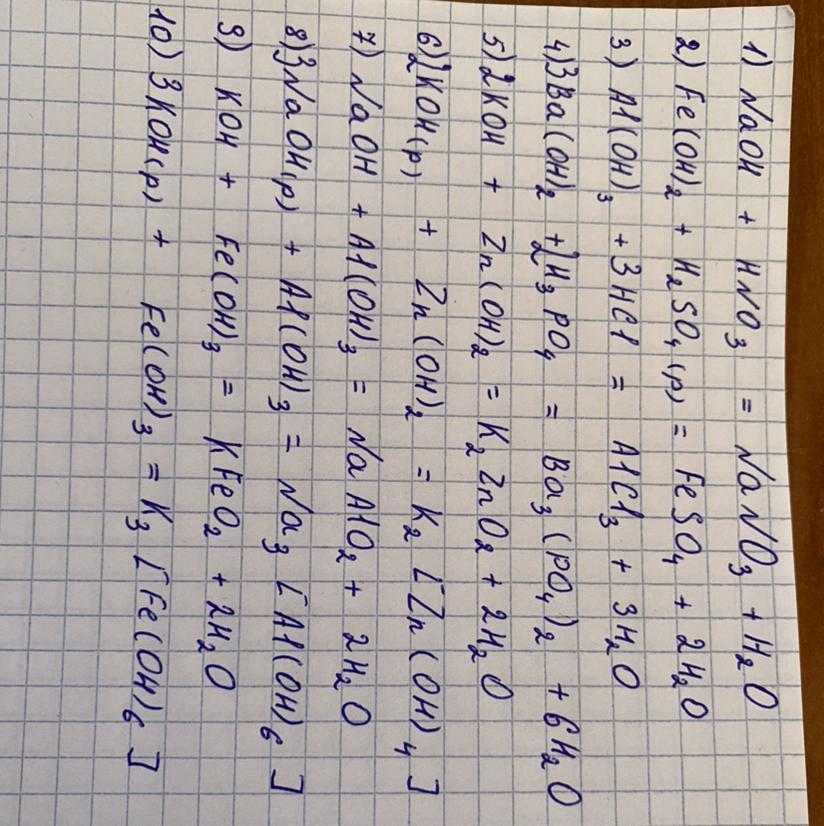 1) NaOH + HNO₃ = NaNO₃ + H₂O
2) Fe(OH)₂ + H₂SO₄(р) = FeSO₄ + 2H₂O
3) Al(OH)₃ + 3HCl = AlCl₃ + 3H₂O
4) 3Ba(OH)₂ + 2H₃PO₄ = Ba₃(PO₄)₂ + 6H₂O
5) 2KOH + Zn(OH)₂ = K₂ZnO₂ + 2H₂O
6) 2KOH(р) + Zn(OH)₂ = K₂[Zn(OH)₄]
7) NaOH + Al(OH)₃ = NaAlO₂ + 2H₂O
8) 3NaOH(р) + Al(OH)₃ = Na₃[Al(OH)₆]
9) KOH + Fe(OH)₃ = KFeO₂ + 2H₂O
10) 3KOH(р) + Fe(OH)₃ = K₃[Fe(OH)₆]